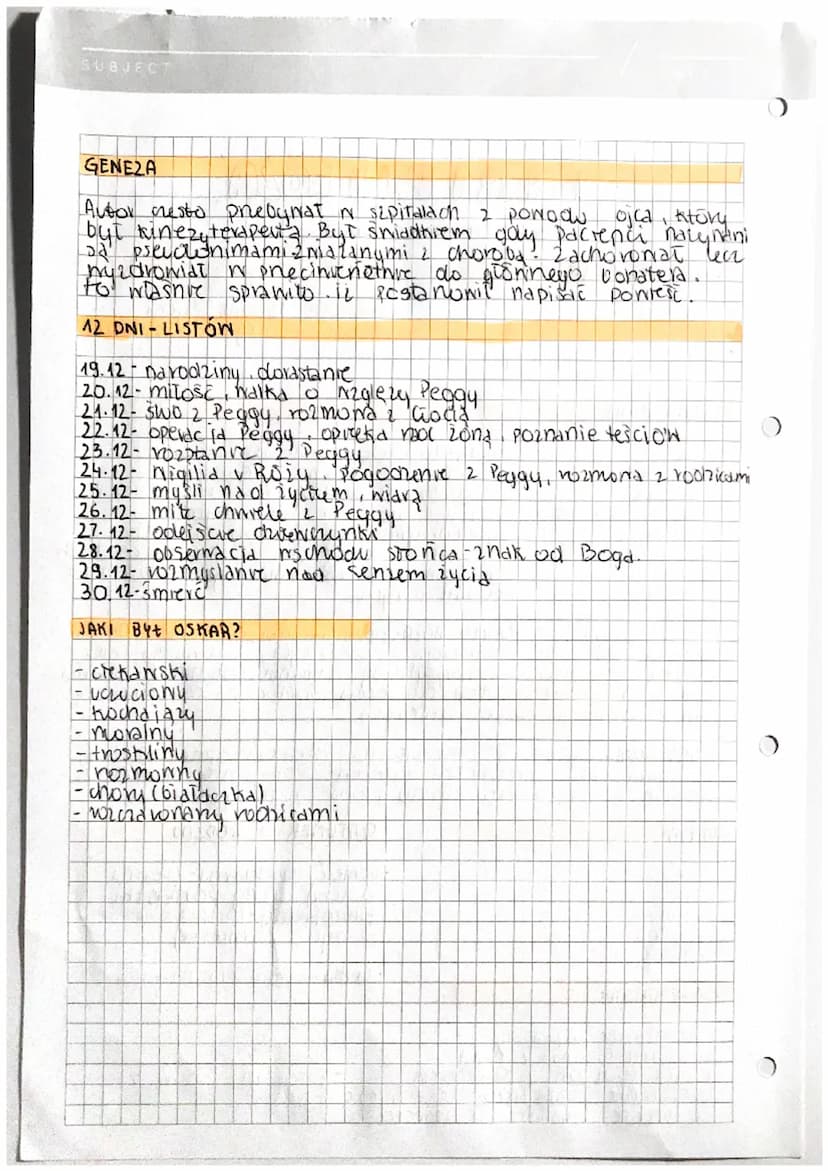 SUBJECT
GENEZA
Autor często przebywał w szpitalach z powodu ojca, który
był kinezyterapeutą. Był świadkiem gdy pacjenci nazywani
są pseudonimami związanymi z chorobą. Zachorował lecz
wyzdrowiał w przeciwieństwie do głównego bohatera.
To właśnie sprawiło iż postanowił napisać powieść.
12 DNI - LISTÓW
19.12 - narodziny, dorastanie
20.12 - miłość, walka o względy Peggy
21.12 - ślub z Peggy, rozmowa z Ciocią
22.12 - operacja Peggy, opieka nad żoną, poznanie teściów
23.12 - rozstanie z Peggy
24.12 - Wigilia u Róży, pogodzenie z Peggy, rozmowa z rodzicami
25.12 - myśli nad życiem, wiarą
26.12 - miłe chwile z Peggy
27.12 - odejście dziewczynki
28.12 - obserwacja wschodu słońca - znak od Boga.
29.12 - rozmyślanie nad sensem życia
30.12 - śmierć
JAKI BYŁ OSKAR?
- ciekawski
- uczuciowy
- kochający
- moralny
- troskliwy
- rozmowny
- chory (białaczka)
- rozczarowany rodzicami